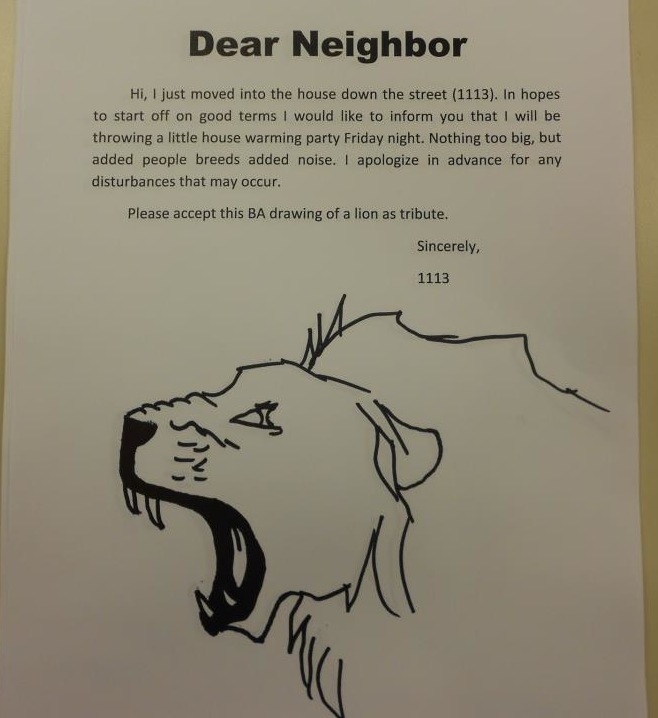 Dear Neighbor
Hi, I just moved into the house down the street (1113). In hopes
to start off on good terms I would like to inform you that I will be
throwing a little house warming party Friday night. Nothing too big, but
added people breeds added noise. I apologize in advance for any
disturbances that may occur.
Please accept this BA drawing of a lion as tribute.
Sincerely,
1113